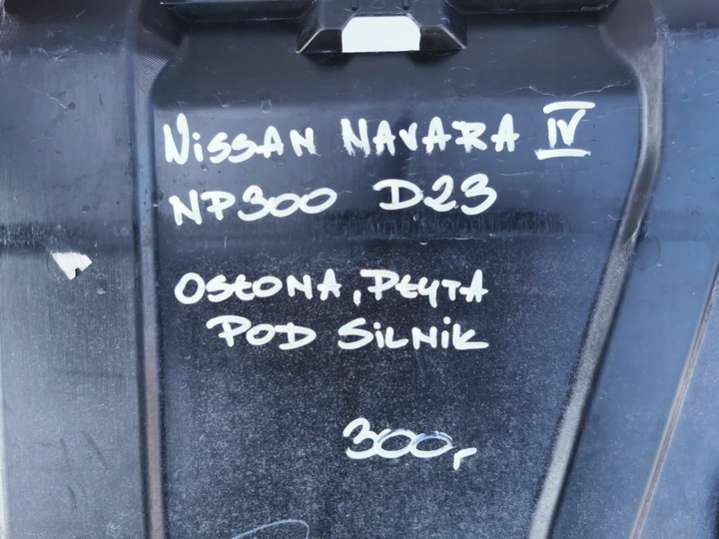 NiSSAN NAVARA IV
NP300 D23
OSŁONA, PŁYTA
POD SiLNiK
300,-